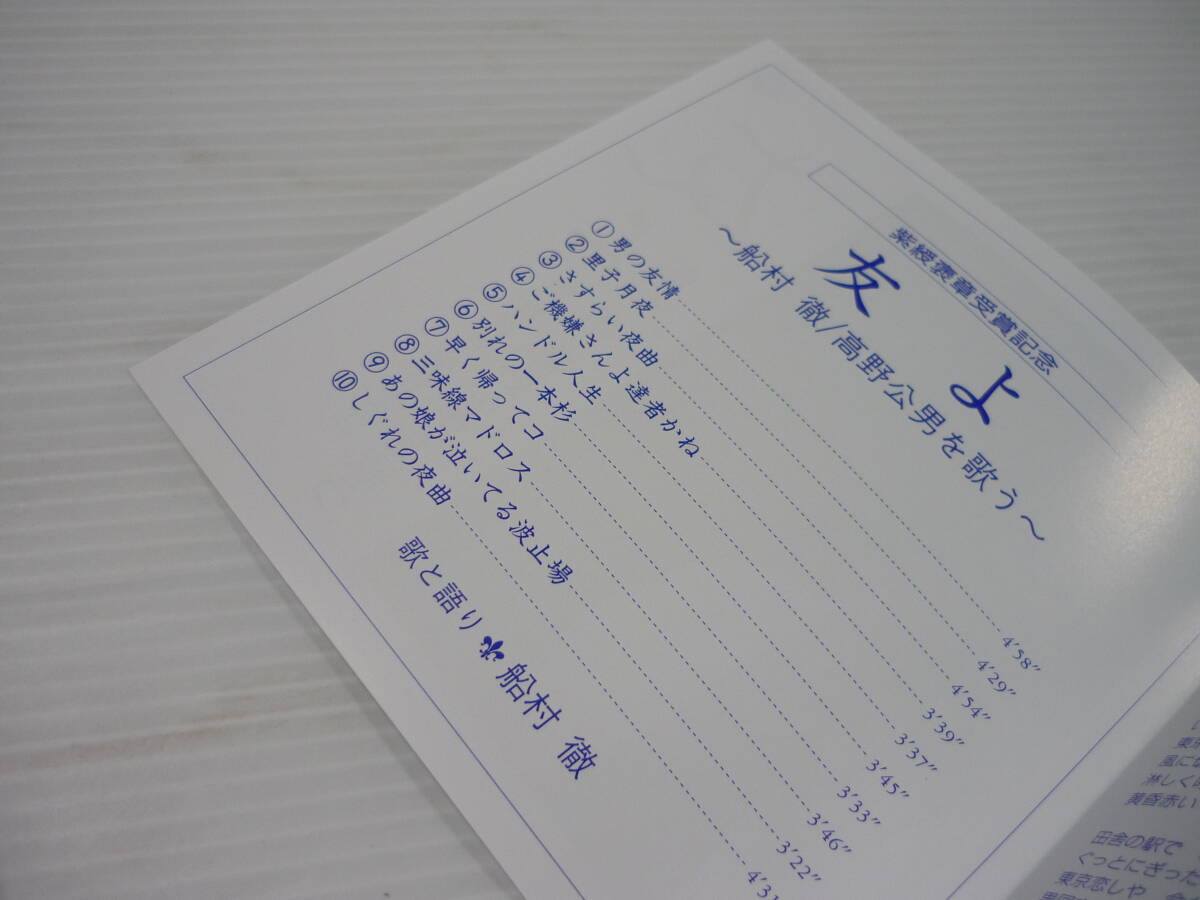 紫綬褒章受賞記念
友よ
〜船村 徹/高野公男を歌う〜
①男の友情 4'58"
②里子月夜 4'29"
③さすらい夜曲 4'54"
④ご機嫌さんよ達者かね 3'39"
⑤ハンドル人生 3'37"
⑥別れの一本杉 3'45"
⑦早く帰ってコ 3'33"
⑧三味線マドロス 3'46"
⑨あの娘が泣いてる波止場 3'22"
⑩しぐれの夜曲 4'31
歌と語り 船村 徹
い
東京
風には
淋しく
黄昏赤い
田舎の駅で
ぐっとにぎった
東京恋しや